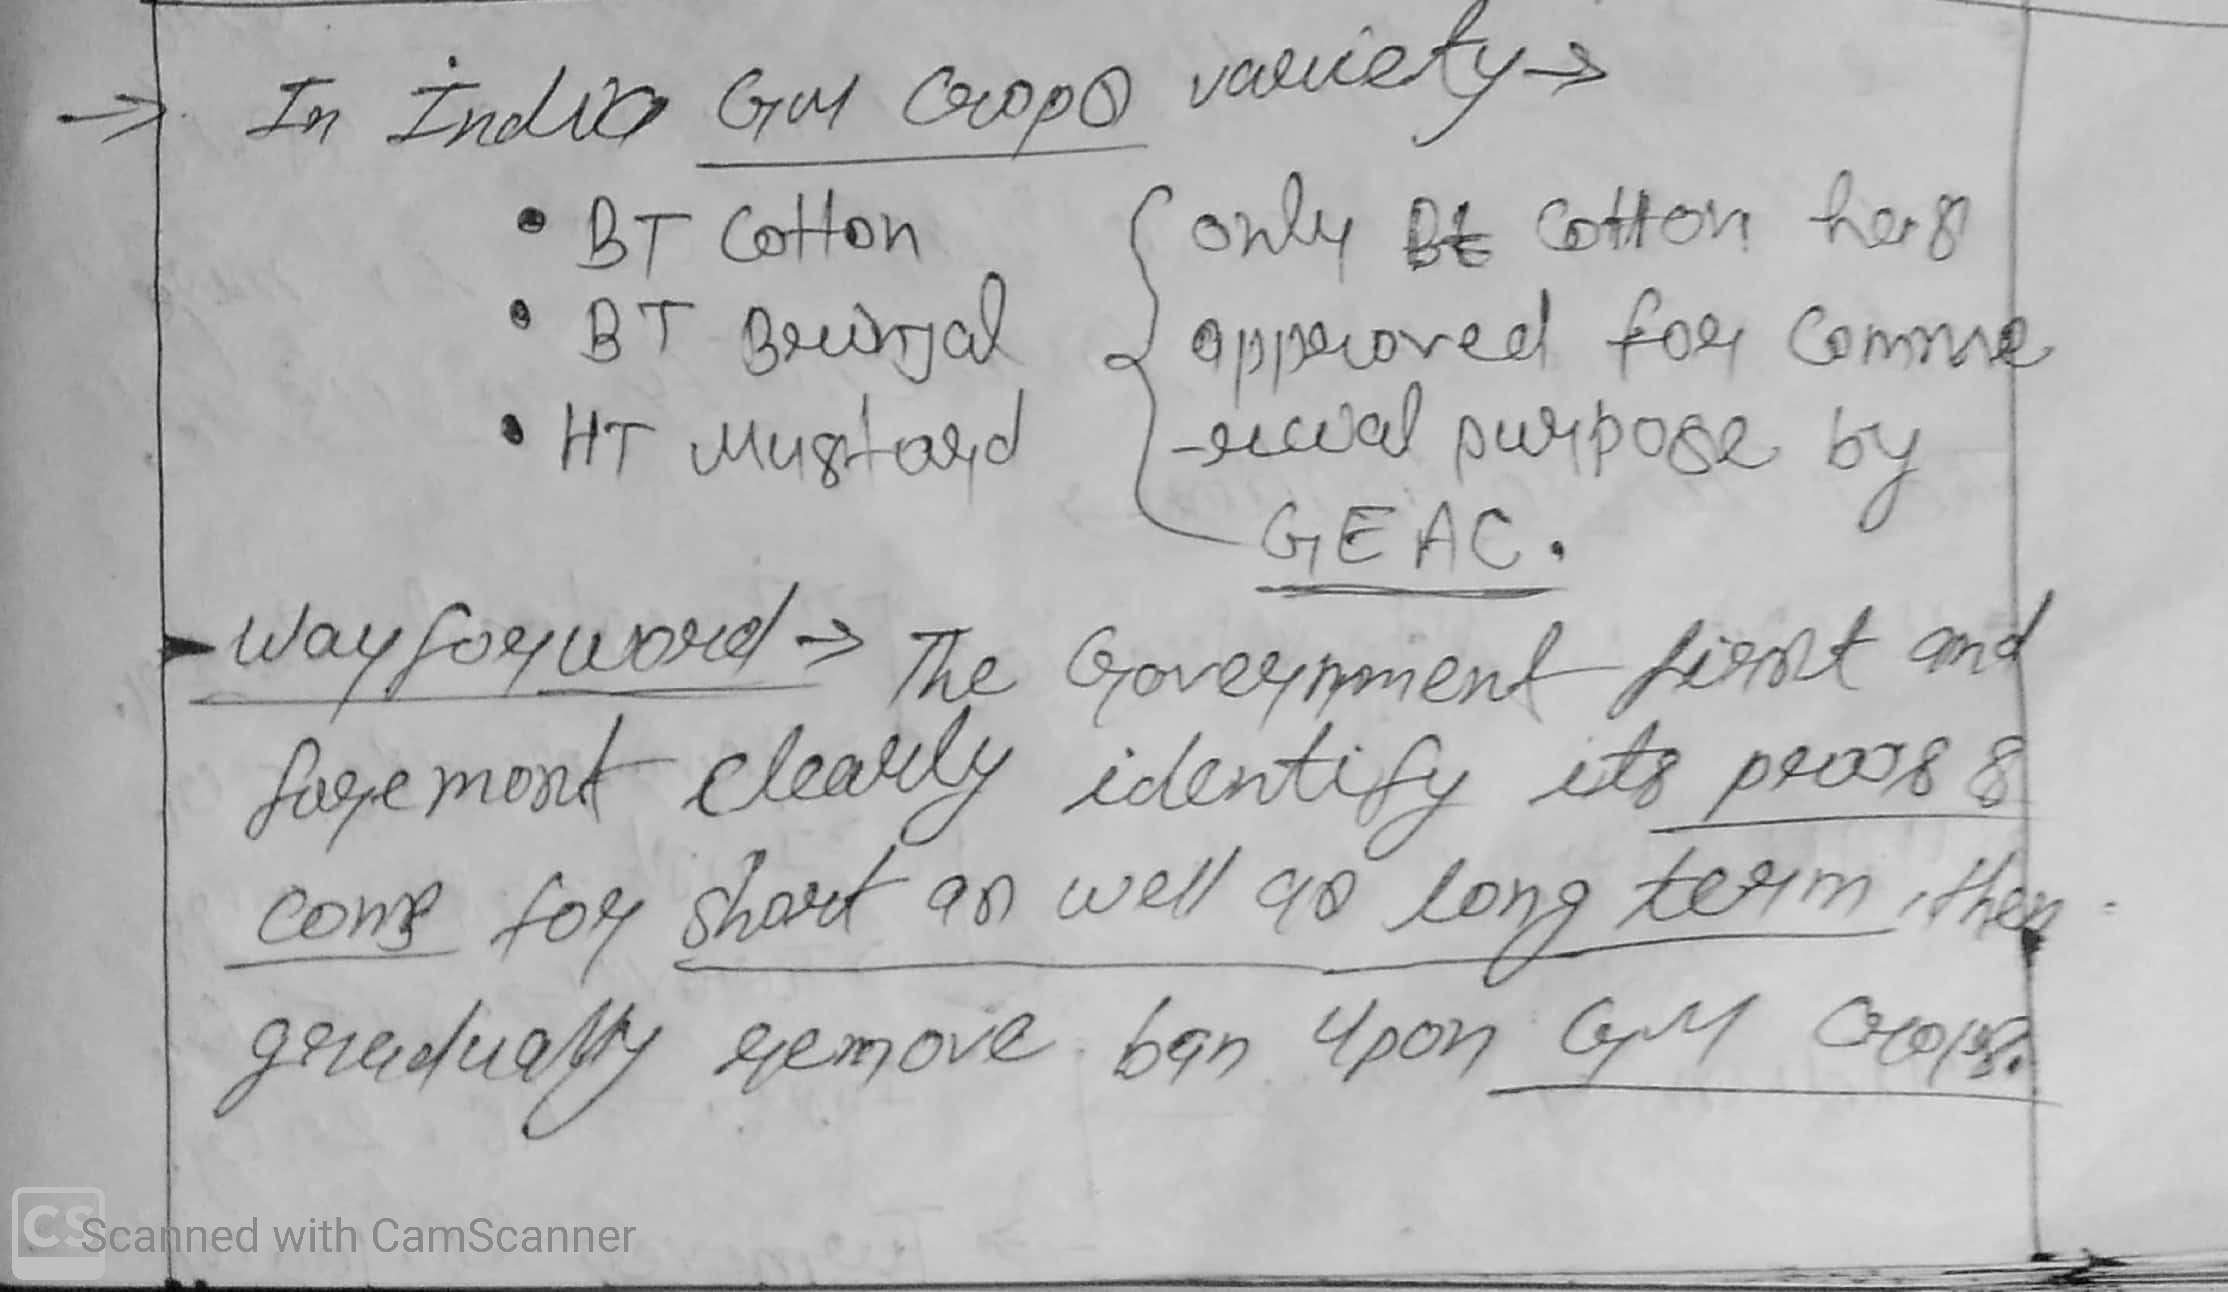 → In India GM Crops variety →
• BT Cotton { only Bt Cotton has
• BT Brinjal approved for Comme
• HT Mustard -rcial purpose by
GEAC.
Way forword → The Government first and
foremost clearly identify its pros &
cons for short as well as long term, then
gradually remove ban upon GM Crops.
CS Scanned with CamScanner